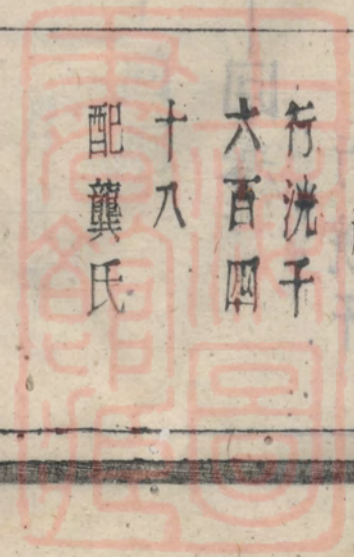 行洸千
六百四
十八
配龔氏